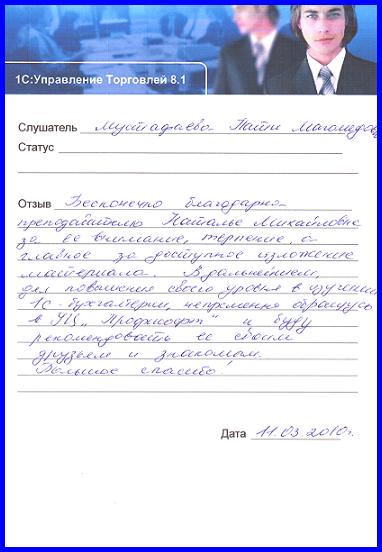 1С:Управление Торговлей 8.1
Слушатель Мустафаева Пати Магомедов
Статус
Отзыв Бесконечно благодарна
преподавателю Наталье Михайловне
за ее внимание, терпение, а
главное за доступное изложение
материала. В дальнейшем,
для повышения своего уровня в изучении
1С-бухгалтерии, непременно обращусь
в УЦ „Профисофт" и буду
рекомендовать ее своим
друзьям и знакомым.
Большое спасибо!
Дата 11.03.2010г.